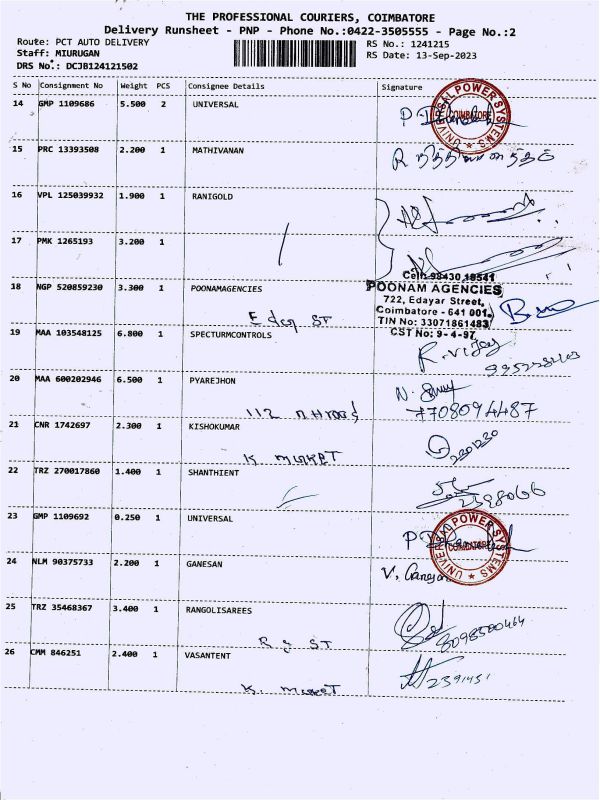 THE PROFESSIONAL COURIERS, COIMBATORE
Delivery Runsheet - PNP - Phone No.:0422-3505555 - Page No.:2
Route: PCT AUTO DELIVERY RS No.: 1241215
Staff: MIURUGAN RS Date: 13-Sep-2023
DRS No.: DCJB124121502
S No Consignment No Weight PCS Consignee Details Signature
14 GMP 1109686 5.500 2 UNIVERSAL
UNIVERSAL POWER SYSTEMS COIMBATORE
15 PRC 13393508 2.200 1 MATHIVANAN R
16 VPL 125039932 1.900 1 RANIGOLD
17 PMK 1265193 3.200 1
18 NGP 520859230 3.300 1 POONAMAGENCIES
Cell: 98430 18541
POONAM AGENCIES
722, Edayar Street,
Coimbatore - 641 001.
TIN No: 33071861483
CST No: 9-4-97
ST
19 MAA 103548125 6.800 1 SPECTURMCONTROLS R. Vijay
20 MAA 600202946 6.500 1 PYAREJHON N.
112 7708094487
21 CNR 1742697 2.300 1 KISHOKUMAR
K MARKET
22 TRZ 270017860 1.400 1 SHANTHIENT
2398066
23 GMP 1109692 0.250 1 UNIVERSAL
UNIVERSAL POWER SYSTEMS COIMBATORE
24 NLM 90375733 2.200 1 GANESAN V. Ganesan
25 TRZ 35468367 3.400 1 RANGOLISAREES
ST 8098500464
26 CMM 846251 2.400 1 VASANTENT
K. MARKET 2391451